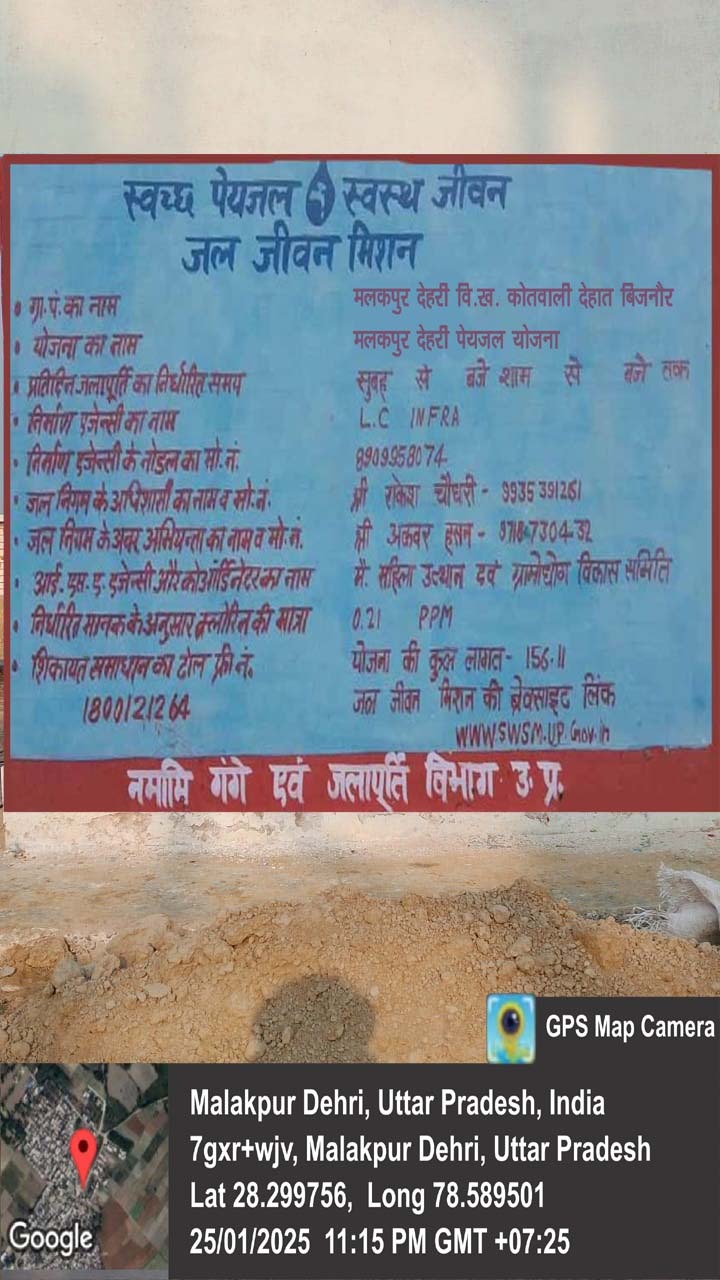 स्वच्छ पेयजल स्वस्थ जीवन
जल जीवन मिशन
• ग्रा.पं. का नाम मलकपुर देहरी वि.ख. कोतवाली देहात बिजनौर
• योजना का नाम मलकपुर देहरी पेयजल योजना
• प्रतिदिन जलापूर्ति का निर्धारित समय सुबह से बजे शाम से बजे तक
• निर्माण एजेन्सी का नाम L.C INFRA
• निर्माण एजेन्सी के नोडल का मो. नं. 8909958074
• जल निगम के अधिशासी का नाम व मो. नं. श्री राकेश चौधरी - 9935391261
• जल निगम के अवर अभियन्ता का नाम व मो. नं. श्री अकबर हसन -
• आई. एस. ए. एजेन्सी और कोऑर्डिनेटर का नाम मै. महिला उत्थान एवं ग्रामोद्योग विकास समिति
• निर्धारित मानक के अनुसार क्लोरिन की मात्रा 0.21 PPM
• शिकायत समाधान का टोल फ्री नं. योजना की कुल लागत - 156.11
1800121264 जल जीवन मिशन की बेवसाइट लिंक
WWW.SWSM.UP.Gov.in
नमामि गंगे एवं जलापूर्ति विभाग उ. प्र.
GPS Map Camera
Malakpur Dehri, Uttar Pradesh, India
7gxr+wjv, Malakpur Dehri, Uttar Pradesh
Lat 28.299756, Long 78.589501
25/01/2025 11:15 PM GMT +07:25
Google